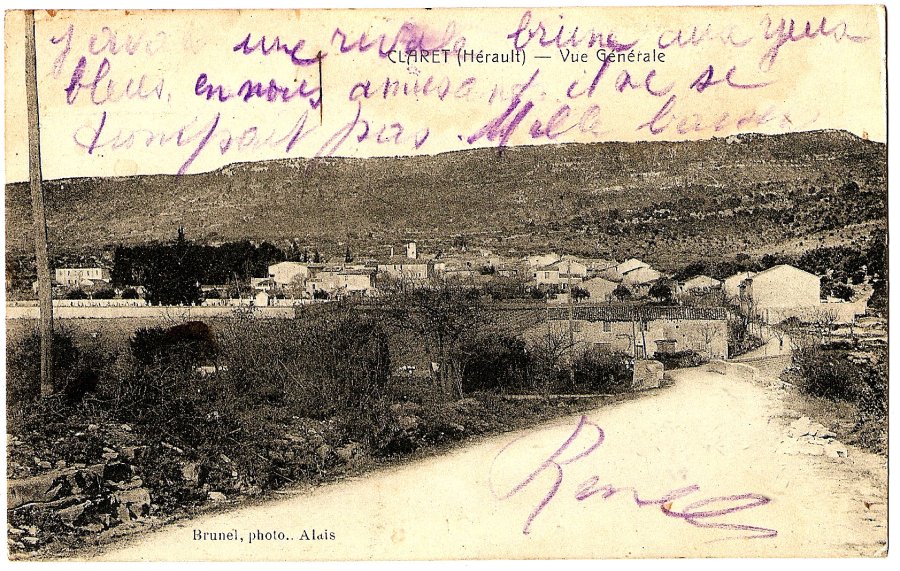 j'avais une rivale brune aux yeux
CLARET (Hérault) — Vue Générale
bleus, en nous amusant, il ne se
trompait pas. Mille baisers
Renée
Brunel, photo.. Alais